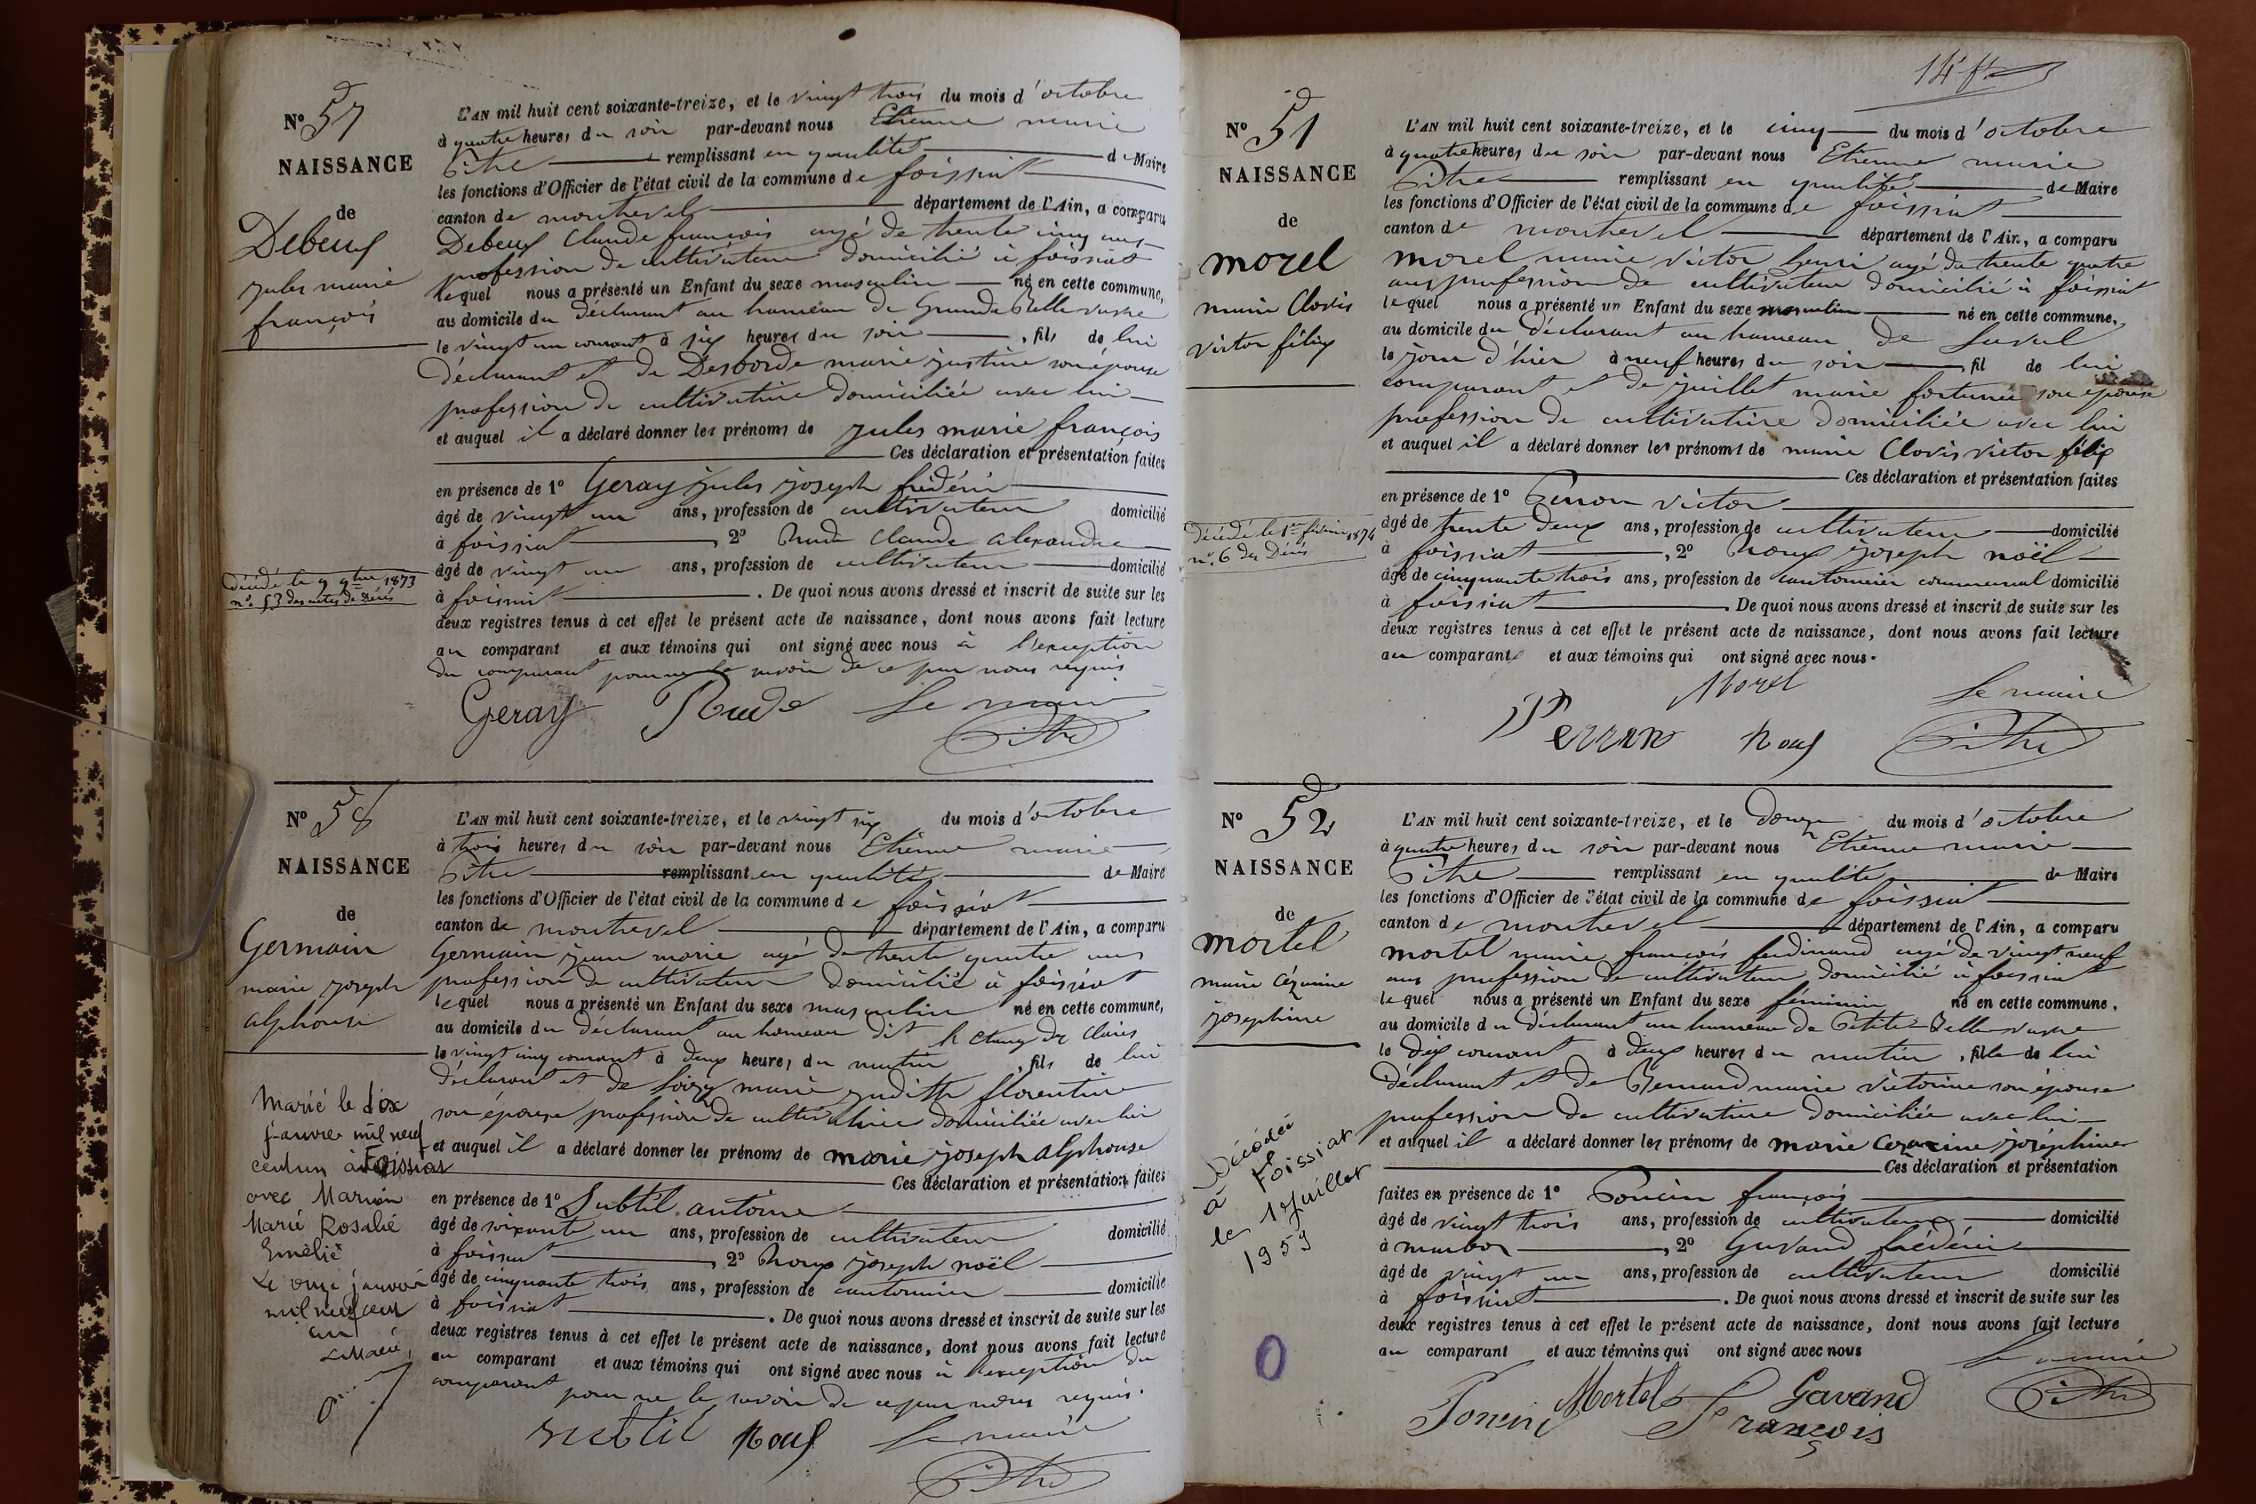 N° 57
NAISSANCE
de
Debeuf
jules marie
françois
décédé le 9 9bre 1873
n° 53 des actes de décès
L'AN mil huit cent soixante-treize, et le vingt trois du mois d'octobre
à quatre heures du soir par-devant nous Etienne marie
Pitre remplissant en qualité de Maire
les fonctions d'Officier de l'état civil de la commune de foissiat
canton de montrevel département de l'Ain, a comparu
Debeuf Claude françois agé de trente cinq ans
profession de cultivateur domicilié à foissiat
lequel nous a présenté un Enfant du sexe masculin né en cette commune,
au domicile du déclarant au hameau de Grande Bellevavre
le vingt un courant à six heures du soir, fils de lui
déclarant et de Desborde marie justine son épouse
profession de cultivatrice domiciliée avec lui
et auquel il a déclaré donner les prénoms de jules marie françois
Ces déclaration et présentation faites
en présence de 1° Geray jules joseph frédéric
âgé de vingt un ans, profession de cultivateur domicilié
à foissiat, 2° Rude Claude alexandre
âgé de vingt un ans, profession de cultivateur domicilié
à foissiat. De quoi nous avons dressé et inscrit de suite sur les
deux registres tenus à cet effet le présent acte de naissance, dont nous avons fait lecture
au comparant et aux témoins qui ont signé avec nous à l'exception
du comparant pour ne le savoir de ce par nous requis
Geray Rude Le maire
Pitre
N° 58
NAISSANCE
de
Germain
marie joseph
alphonse
Marié le dix
janvier mil neuf
cent un à Foissiat
avec Marion
Marie Rosalie
Emélie
Le onze janvier
mil neuf cent
un
Le Maire,
L'AN mil huit cent soixante-treize, et le vingt six du mois d'octobre
à trois heures du soir par-devant nous Etienne marie
Pitre remplissant en qualité de Maire
les fonctions d'Officier de l'état civil de la commune de foissiat
canton de montrevel département de l'Ain, a comparu
Germain jean marie agé de trente quatre ans
profession de cultivateur domicilié à foissiat
lequel nous a présenté un Enfant du sexe masculin né en cette commune,
au domicile du déclarant au hameau dit
le vingt cinq courant à deux heures du matin, fils de lui
déclarant et de marie judith florentine
son épouse profession de cultivatrice domiciliée avec lui
et auquel il a déclaré donner les prénoms de marie joseph alphonse
Ces déclaration et présentation faites
en présence de 1° Subtil antoine
âgé de soixante un ans, profession de cultivateur domicilié
à foissiat, 2° Roux joseph noël
âgé de cinquante trois ans, profession de cantonnier domicilié
à foissiat. De quoi nous avons dressé et inscrit de suite sur les
deux registres tenus à cet effet le présent acte de naissance, dont nous avons fait lecture
au comparant et aux témoins qui ont signé avec nous à l'exception du
comparant pour ne le savoir de ce par nous requis.
subtil Roux Le maire
Pitre
N° 51
NAISSANCE
de
morel
marie Clovis
victor félix
décédé le 1er février 1874
n° 6 des Décès
L'AN mil huit cent soixante-treize, et le cinq du mois d'octobre
à quatre heures du soir par-devant nous Etienne marie
Pitre remplissant en qualité de Maire
les fonctions d'Officier de l'état civil de la commune de foissiat
canton de montrevel département de l'Ain, a comparu
morel marie victor henri agé de trente quatre
ans profession de cultivateur domicilié à foissiat
lequel nous a présenté un Enfant du sexe masculin né en cette commune,
au domicile du déclarant au hameau de
le jour d'hier à neuf heures du soir fil de lui
comparant et de juillet marie fortunée son épouse
profession de cultivatrice domiciliée avec lui
et auquel il a déclaré donner les prénoms de marie Clovis victor félix
Ces déclaration et présentation faites
en présence de 1° Perron victor
âgé de trente deux ans, profession de cultivateur domicilié
à foissiat, 2° Roux joseph noël
âgé de cinquante trois ans, profession de cantonnier communal domicilié
à foissiat. De quoi nous avons dressé et inscrit de suite sur les
deux registres tenus à cet effet le présent acte de naissance, dont nous avons fait lecture
au comparant et aux témoins qui ont signé avec nous.
Morel Le maire
Perron Roux Pitre
N° 52
NAISSANCE
de
mortel
marie Cézarine
josephine
Décédée
à Foissiat
le 1 Juillet
1959
L'AN mil huit cent soixante-treize, et le Douze du mois d'octobre
à quatre heures du soir par-devant nous Etienne marie
Pitre remplissant en qualité de Maire
les fonctions d'Officier de l'état civil de la commune de foissiat
canton de montrevel département de l'Ain, a comparu
mortel marie françois ferdinand agé de vingt neuf
ans profession de cultivateur domicilié à foissiat
lequel nous a présenté un Enfant du sexe féminin né en cette commune,
au domicile du déclarant au hameau de Petite Bellevavre
le dix courant à deux heures du matin, fille de lui
déclarant et de Bernard marie victorine son épouse
profession de cultivatrice domiciliée avec lui
et auquel il a déclaré donner les prénoms de marie Cézarine joséphine
Ces déclaration et présentation
faites en présence de 1° Poncin françois
âgé de vingt trois ans, profession de cultivateur domicilié
à marboz, 2° Gavand frédéric
âgé de vingt un ans, profession de cultivateur domicilié
à foissiat. De quoi nous avons dressé et inscrit de suite sur les
deux registres tenus à cet effet le présent acte de naissance, dont nous avons fait lecture
au comparant et aux témoins qui ont signé avec nous
Le maire
Poncin Mortel Gavand Pitre
François